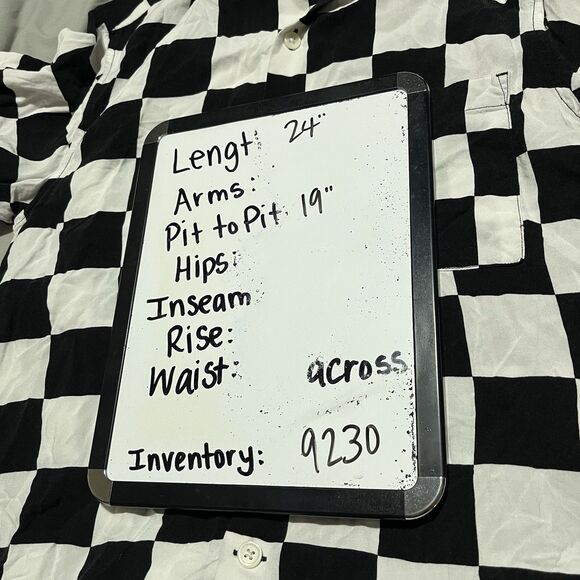 Lengt: 24"
Arms:
Pit to Pit. 19"
Hips:
Inseam
Rise:
Waist: across
Inventory: 9230